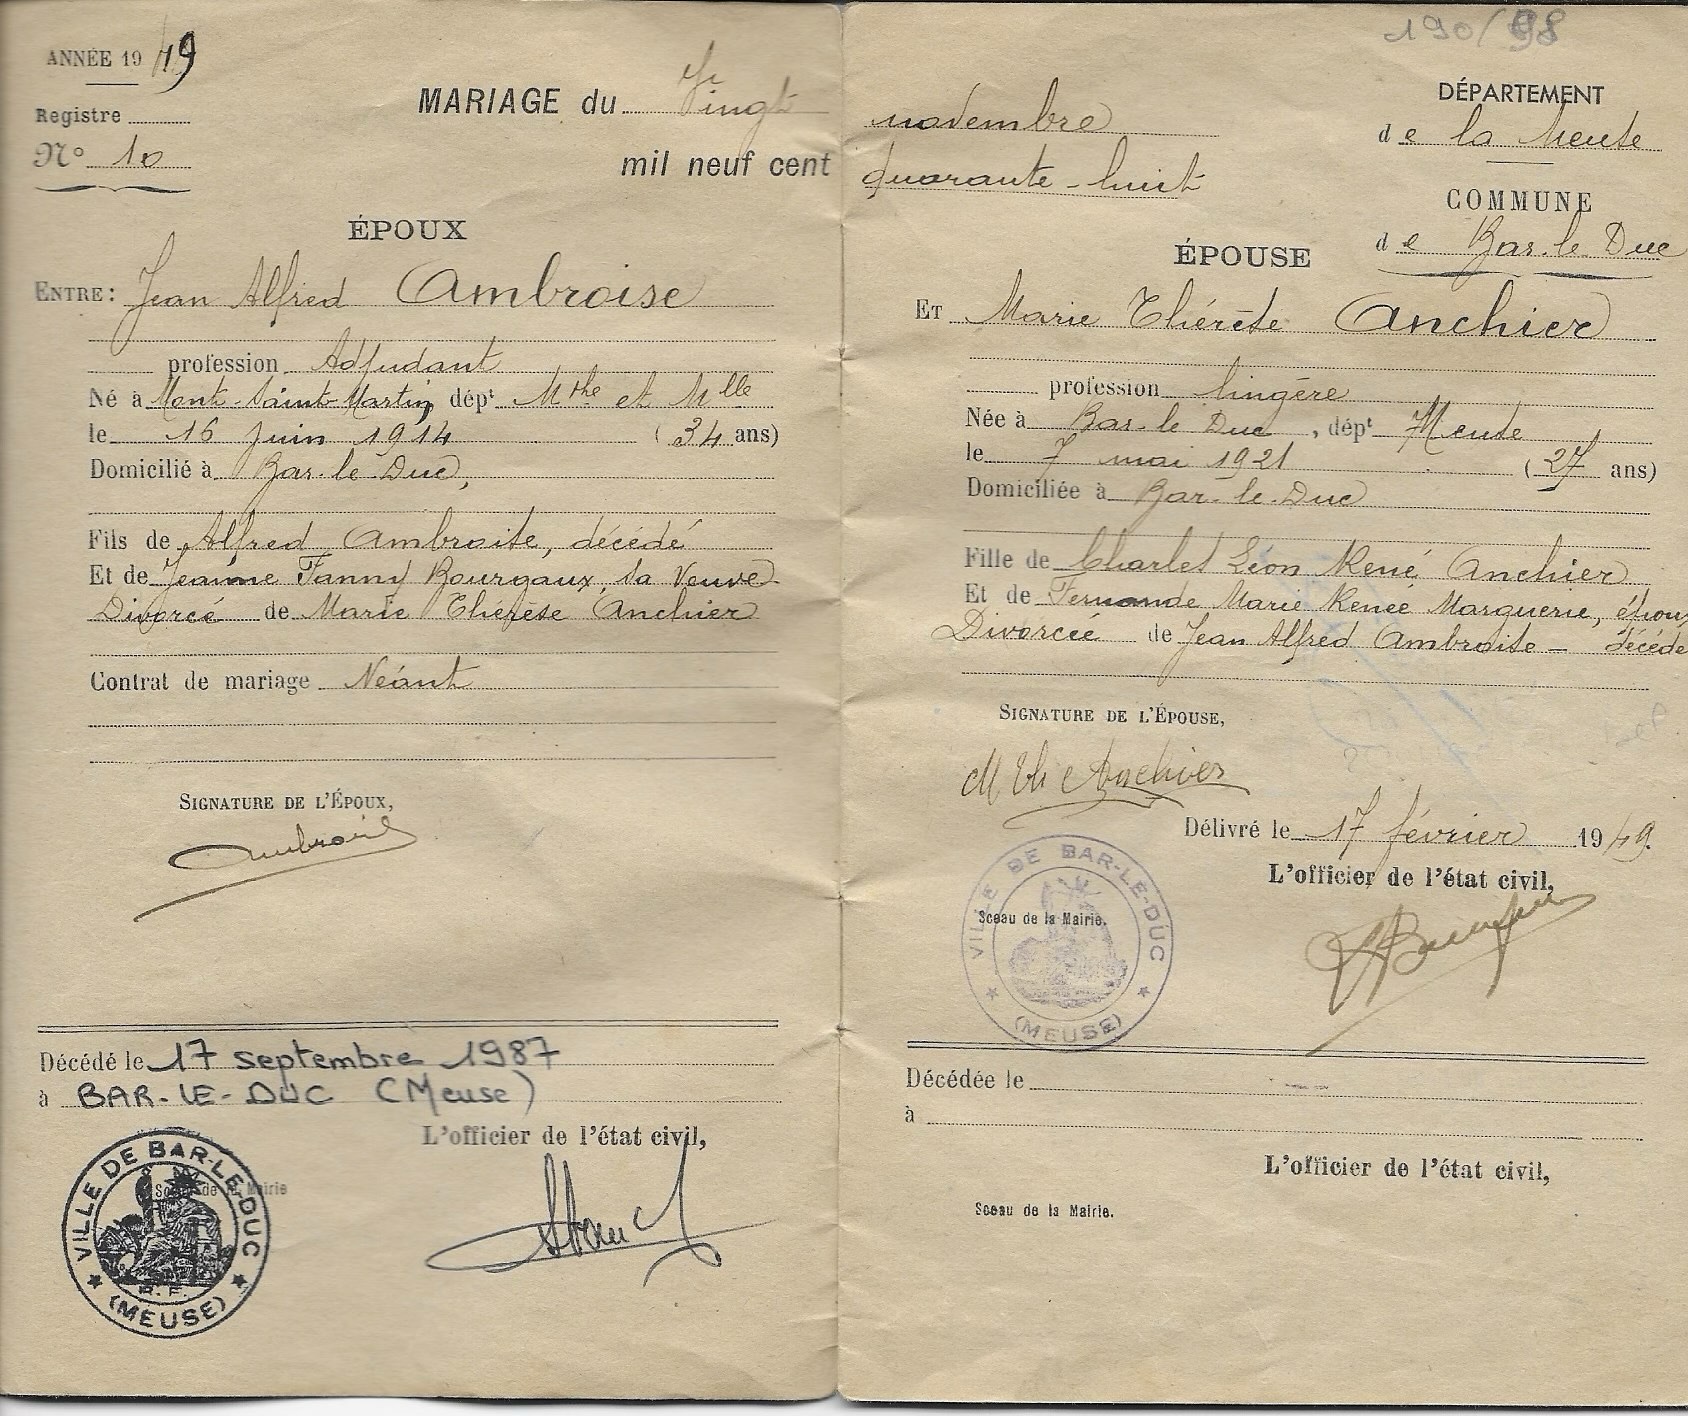 ANNÉE 19 49
Registre
N° 10
MARIAGE du Vingt
mil neuf cent
ÉPOUX
ENTRE : Jean Alfred Ambroise
profession Adjudant
Né à Mont-Saint-Martin, dépt Mthe et Mlle
le 16 Juin 1914 (34 ans)
Domicilié à Bar-le-Duc,
Fils de Alfred Ambroise, décédé
Et de Jeanne Fanny Bourgaux, sa Veuve
Divorcé de Marie Thérèse Anchier
Contrat de mariage Néant
SIGNATURE DE L'ÉPOUX,
Ambroise
Décédé le 17 septembre 1987
à BAR-LE-DUC (Meuse)
L'officier de l'état civil,
Sceau de la Mairie
VILLE DE BAR-LE-DUC
R.F.
(MEUSE)
190/98
novembre
quarante-huit
DÉPARTEMENT
de la Meuse
COMMUNE
de Bar-le-Duc
ÉPOUSE
ET Marie Thérèse Anchier
profession lingère
Née à Bar-le-Duc, dépt Meuse
le 7 mai 1921 (27 ans)
Domiciliée à Bar-le-Duc
Fille de Charles Léon René Anchier
Et de Fernande Marie Renée Marguerie, époux
Divorcée de Jean Alfred Ambroise — décédé
SIGNATURE DE L'ÉPOUSE,
M Th Anchier
Délivré le 17 février 1949.
L'officier de l'état civil,
Sceau de la Mairie.
VILLE DE BAR-LE-DUC
(MEUSE)
Décédée le
à
L'officier de l'état civil,
Sceau de la Mairie.